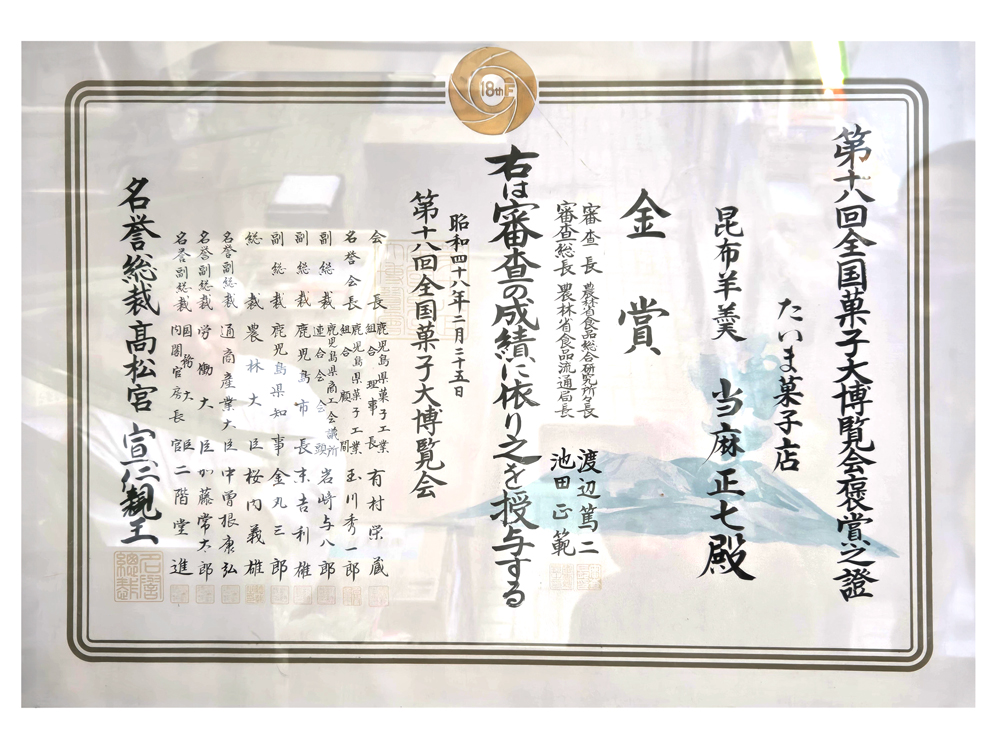 18th
第十八回全国菓子大博覧会褒賞之證
たいま菓子店
昆布羊羹 当麻正七殿
金賞
審査長 農林省食品総合研究所長 渡辺篤二
審査総長 農林省食品流通局長 池田正範
右は審査の成績に依り之を授与する
昭和四十八年二月二十五日
第十八回全国菓子大博覧会
会長 鹿児島県菓子工業組合理事長 有村栄蔵
名誉会長 鹿児島県菓子工業組合顧問 玉川秀一郎
副総裁 鹿児島県商工会議所連合会会頭 岩崎与八郎
副総裁 鹿児島市長 末吉利雄
副総裁 鹿児島県知事 金丸三郎
総裁 農林大臣 桜内義雄
名誉副総裁 通商産業大臣 中曽根康弘
名誉副総裁 労働大臣 加藤常太郎
名誉副総裁 国務大臣 内閣官房長官 二階堂進
名誉総裁 高松宮 宣仁親王
名誉總裁